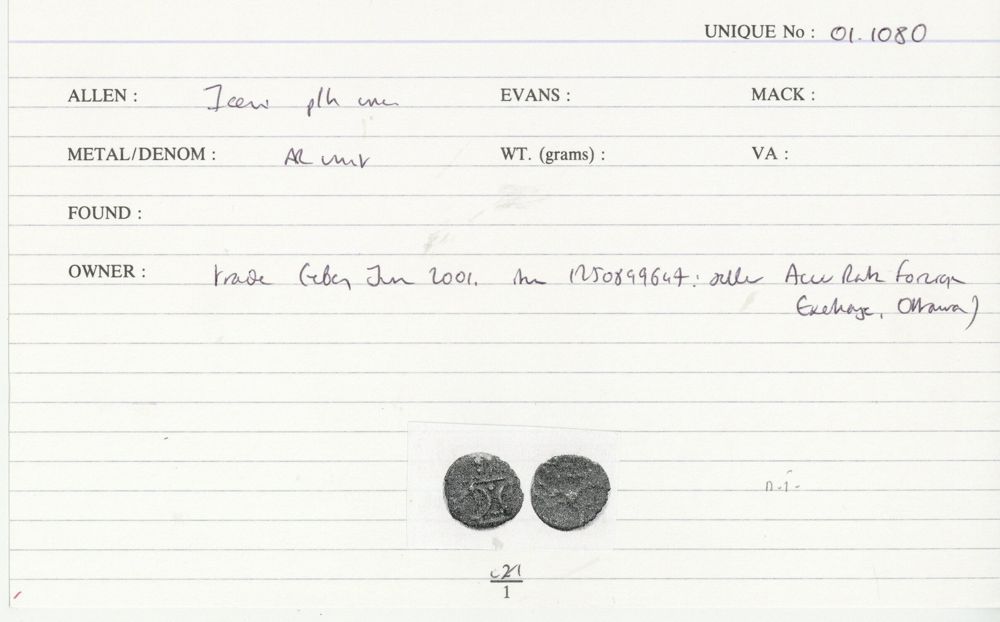 UNIQUE No : 01.1080
ALLEN : Iceni EVANS : MACK :
METAL/DENOM : AR unit WT. (grams) : VA :
FOUND :
OWNER : trade (eBay Jun 2001. 1250899647: seller Accu Rate Foreign
Exchange, Ottawa)
n.i-
c2/1
1